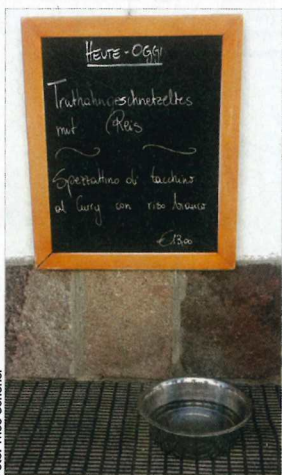 HEUTE - OGGI
Truthahngeschnetzeltes
mit Reis
Spezzattino di tacchino
al Curry con riso bianco
€ 13,00